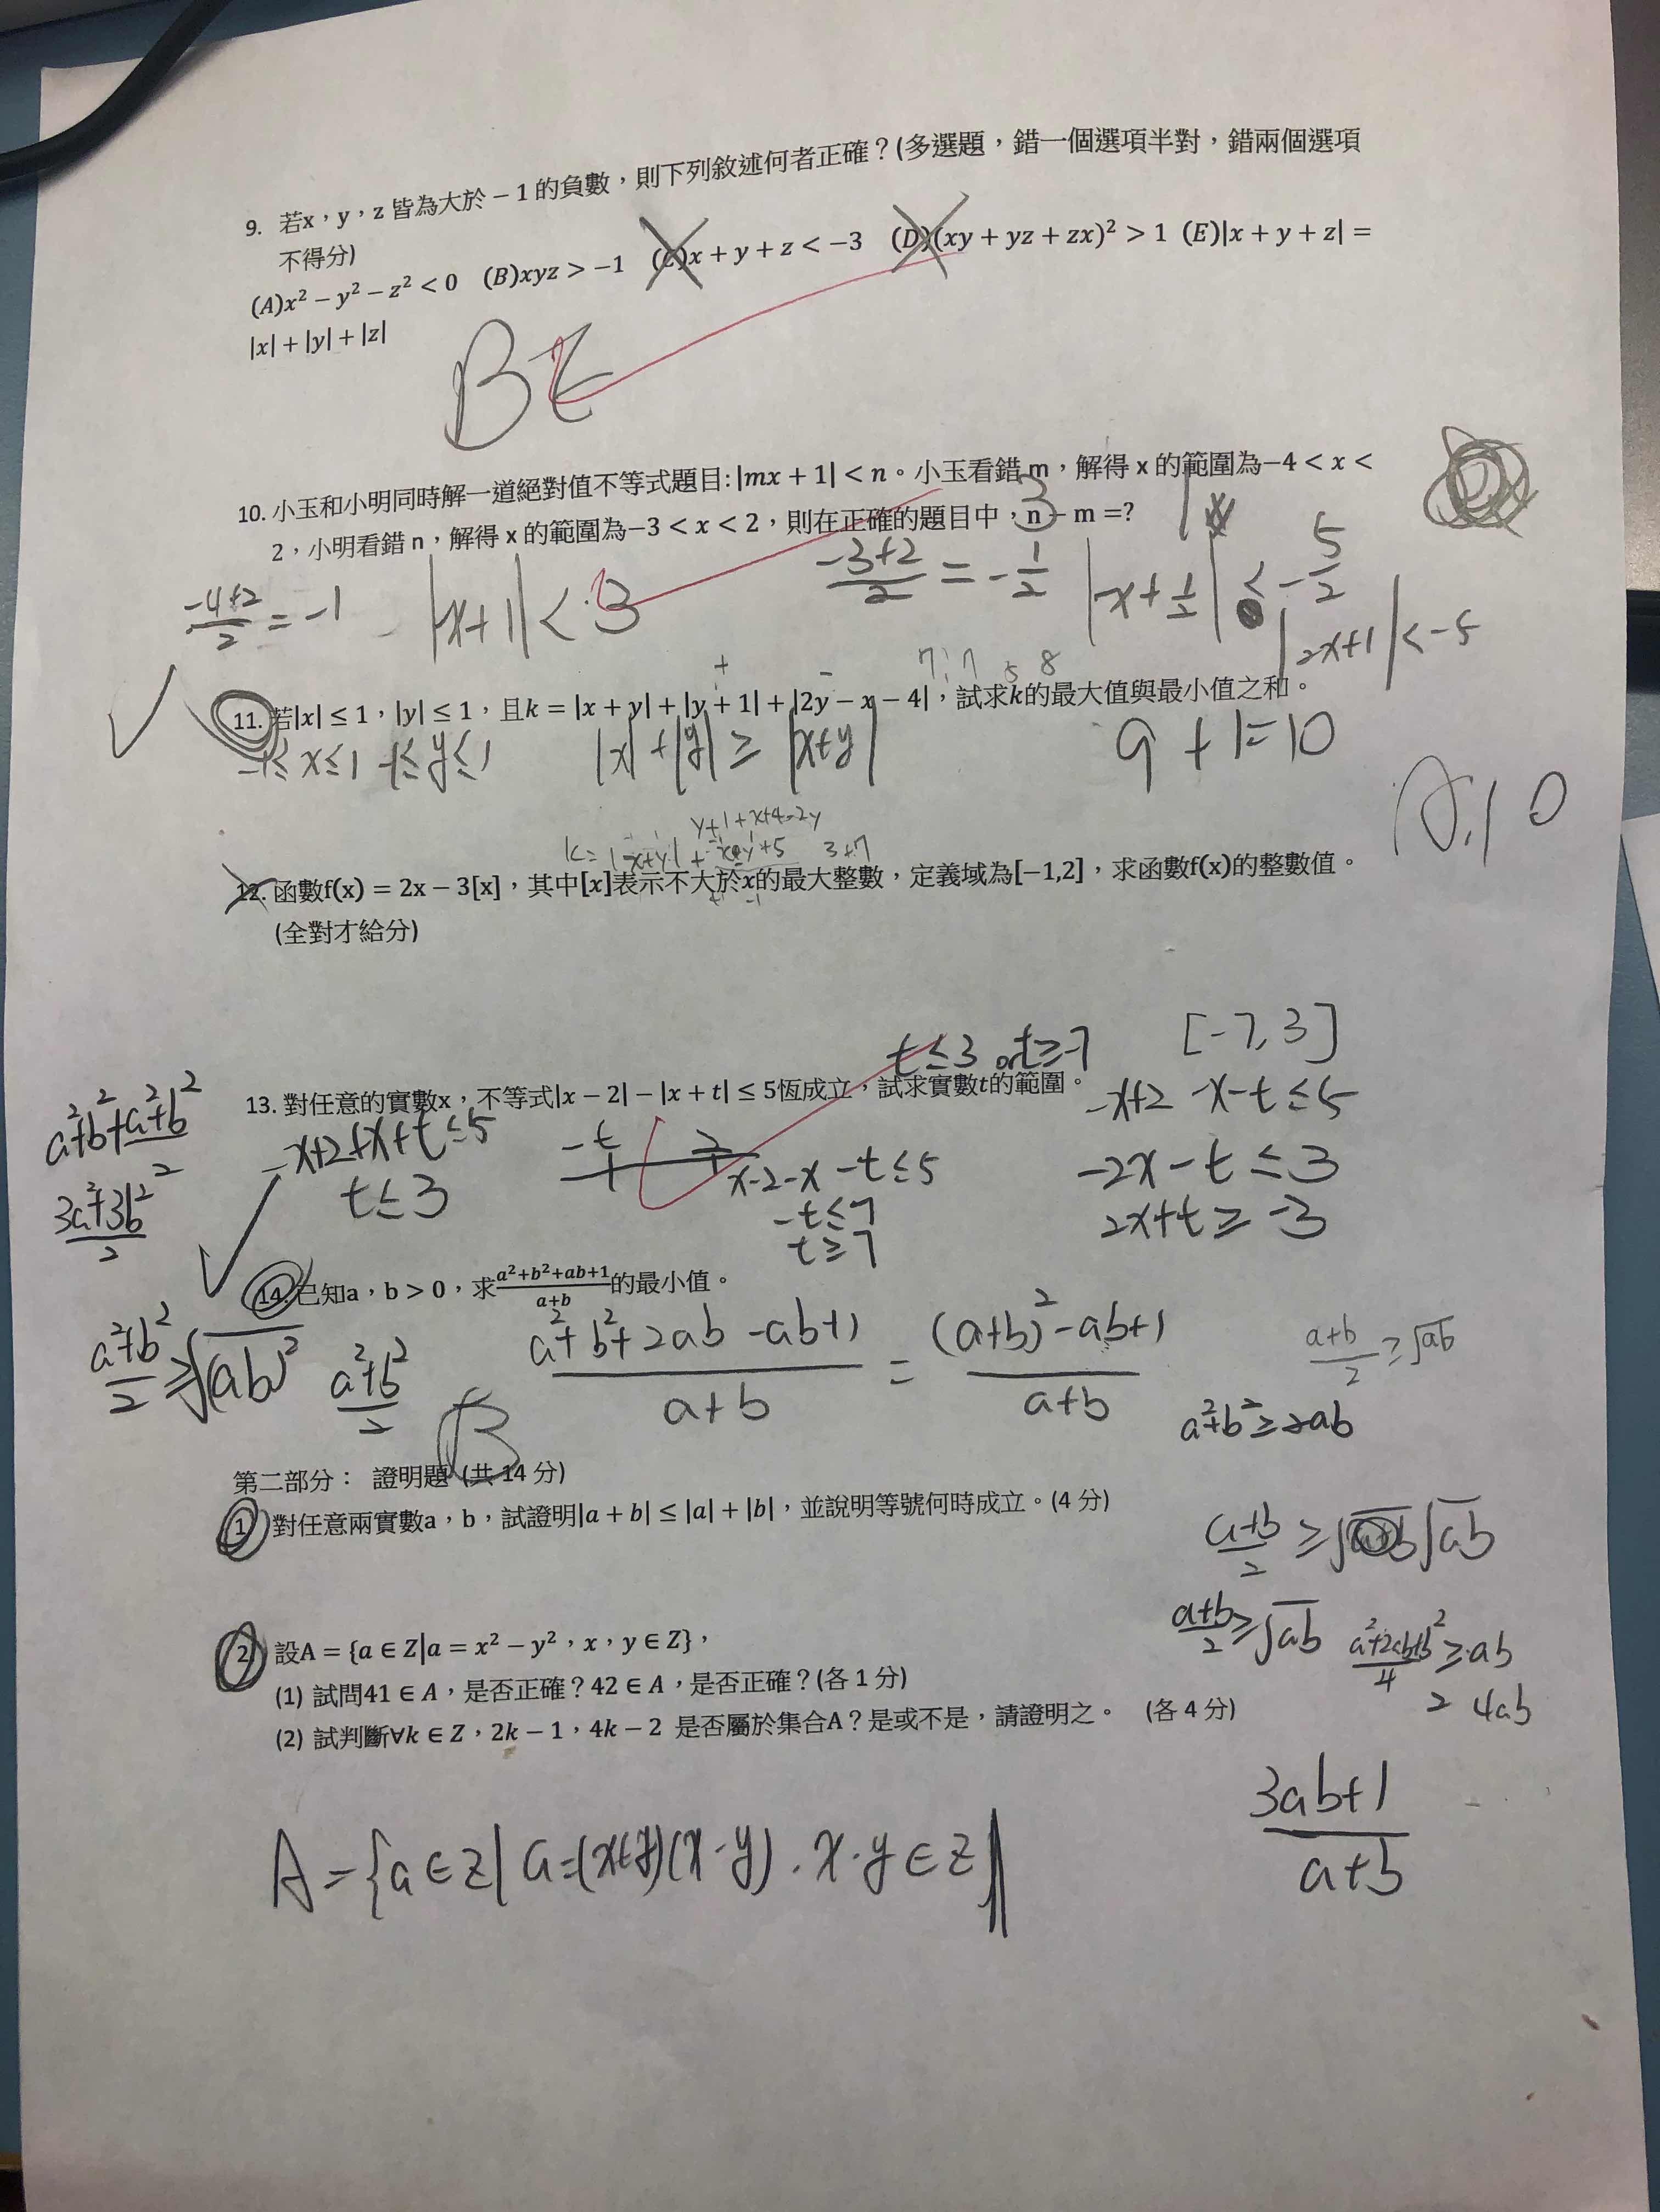 9. 若x，y，z 皆為大於 − 1 的負數，則下列敘述何者正確？(多選題，錯一個選項半對，錯兩個選項
不得分)
(A)x² − y² − z² < 0 (B)xyz > −1 (C)x + y + z < −3 (D)(xy + yz + zx)² > 1 (E)|x + y + z| =
|x| + |y| + |z|
BE
10. 小玉和小明同時解一道絕對值不等式題目: |mx + 1| < n。小玉看錯 m，解得 x 的範圍為−4 < x <
2，小明看錯 n，解得 x 的範圍為−3 < x < 2，則在正確的題目中，n − m =?
3
-4+2/2 = -1
|x+1| < 3
-3+2/2 = -1/2
|x+1/2| < -5/2
|2x+1| < -5
+ - 7 7 5 8
11. 若|x| ≤ 1，|y| ≤ 1，且k = |x + y| + |y + 1| + |2y − x − 4|，試求k的最大值與最小值之和。
-1≤x≤1 -1≤y≤1
|x|+|y| ≥ |x+y|
9 + 1=10
y+1+x+4-2y
3+7
12. 函數f(x) = 2x − 3[x]，其中[x]表示不大於x的最大整數，定義域為[−1,2]，求函數f(x)的整數值。
(全對才給分)
t≤3 or t≥-7
[-7,3]
13. 對任意的實數x，不等式|x − 2| − |x + t| ≤ 5恆成立，試求實數t的範圍。
-x+2+x+t≤5
t≤3
-t 2
x-2-x-t≤5
-t≤7
t≥7
-x+2 -x-t≤5
-2x-t≤3
2x+t≥-3
a²+b²+a²+b²/2
3a²+3b²/2
14. 已知a，b > 0，求a²+b²+ab+1/a+b的最小值。
a²+b²/2 ≥ √(ab)²
a²+b²/2
a²+b²+2ab-ab+1/a+b = (a+b)²-ab+1/a+b
a+b/2 ≥ √ab
a²+b²≥2ab
第二部分： 證明題 (共 14 分)
1. 對任意兩實數a，b，試證明|a + b| ≤ |a| + |b|，並說明等號何時成立。(4 分)
a+b/2 ≥ √ab
a+b/2 ≥ √ab
a²+2ab+b²/4 ≥ ab
≥ 4ab
2. 設A = {a ∈ Z|a = x² − y²，x，y ∈ Z}，
(1) 試問41 ∈ A，是否正確？42 ∈ A，是否正確？(各 1 分)
(2) 試判斷∀k ∈ Z，2k − 1，4k − 2 是否屬於集合A？是或不是，請證明之。 (各 4 分)
3ab+1/a+b
A={a∈Z|a=(x+y)(x-y).x.y∈Z}